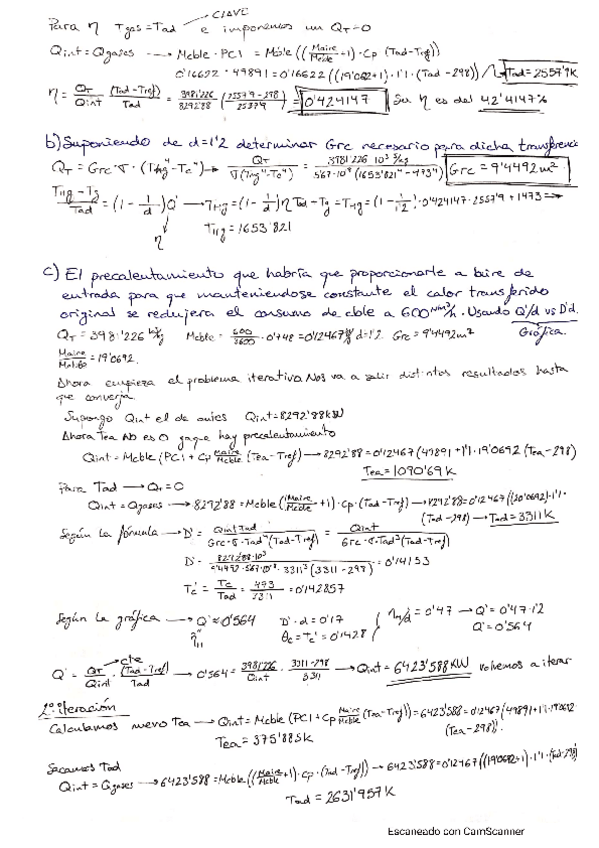 CLAVE
Para η Tgas=Tad e imponemos un QT=0
Qint=Qgases → Mcble·PCI = Mcble((Maire/Mcble+1)·Cp (Tad-Tref))
0'16622·49891=0'16622((19'0692+1)·1'1·(Tad-298)) Tad=2557'9K
η= QT/Qint (Tad-Tref)/Tad = 3981'226/8292'88 (2557'9-298/2557'9) = 0'424147 Su η es del 42'4147%
b) Suponiendo de d=1'2 determinar Grc necesario para dicha transferencia
QT=Grc·σ·(Thg⁴-Tc⁴) → QT/σ(Thg⁴-Tc⁴) = 3981'226·10³/5'67·10⁻⁸(1653'821⁴-473⁴) Grc=9'4492m²
Thg-Tg/Tad=(1-1/d)Q' → Thg=(1-1/d)η Tad-Tg=Thg=(1-1/1'2)·0'424147·2557'9+1473
η
Thg=1653'821
c) El precalentamiento que habría que proporcionarle a aire de
entrada para que manteniendose constante el calor transferido
original se redujera el consumo de cble a 600 Nm³/h. Usando Q'/d vs D'd.
Gráfica.
QT=398'226 Mcble=600/3600·0'748=0'12467 d=1'2 Grc=9'4492m²
Maire/Mcble=19'0692.
Ahora empieza el problema iterativo Nos va a salir distintos resultados hasta
que converja
Supongo Qint el de antes Qint=8292'88kW
Ahora Tea NO es 0 ya que hay precalentamiento
Qint=Mcble(PCI+Cp Maire/Mcble (Tea-Tref) → 8292'88=0'12467(49891+1'1·19'0692(Tea-298)
Tea=1090'69K
Para Tad → QT=0
Qint=Qgases → 8292'88=Mcble((Maire/Mcble+1)·Cp·(Tad-Tref) → 8292'88=0'12467((20'0692)·1'1·
(Tad-298) → Tad=3311K
Según la fórmula → D'= Qint Tad/Grc·σ·Tad⁴(Tad-Tref) = Qint/Grc·σ·Tad³(Tad-Tref)
D'= 8292'88·10³/9'4492·5'67·10⁻⁸·3311³(3311-298) =0'14153
Tc'=Tc/Tad=473/3311=0'142857
Según la gráfica → Q'≈0'564 D'·d=0'17 η/d=0'47 → Q'=0'47·1'2
η θc=Tc'=0'1428 Q'=0'564
cte
Q'=QT/Qint·(Tad-Tref)/Tad → 0'564=3981'226/Qint·3311-298/3311 → Qint=6423'588KW volvemos a iterar
2ª iteración
Calculamos nuevo Tea → Qint=Mcble(PCI+Cp Maire/Mcble (Tea-Tref))=6423'588=0'12467(49891+1'1·19'0692
(Tea-298))
Tea=375'885K
Sacamos Tad
Qint=Qgases → 6423'588=Mcble((Maire/Mcble+1)·Cp·(Tad-Tref)) → 6423'588=0'12467((19'0692+1)·1'1·(Tad-298)
Tad=2631'957K
Escaneado con CamScanner